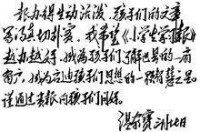 报办得生动活泼，孩子们的文章
写得真切朴实。我希望《小学生学习报》
越办越好，成为孩子们了解世界的一扇
窗户，成为启迪孩子们思想的一颗智慧星。
谨通过贵报向孩子们问候。
温家宝